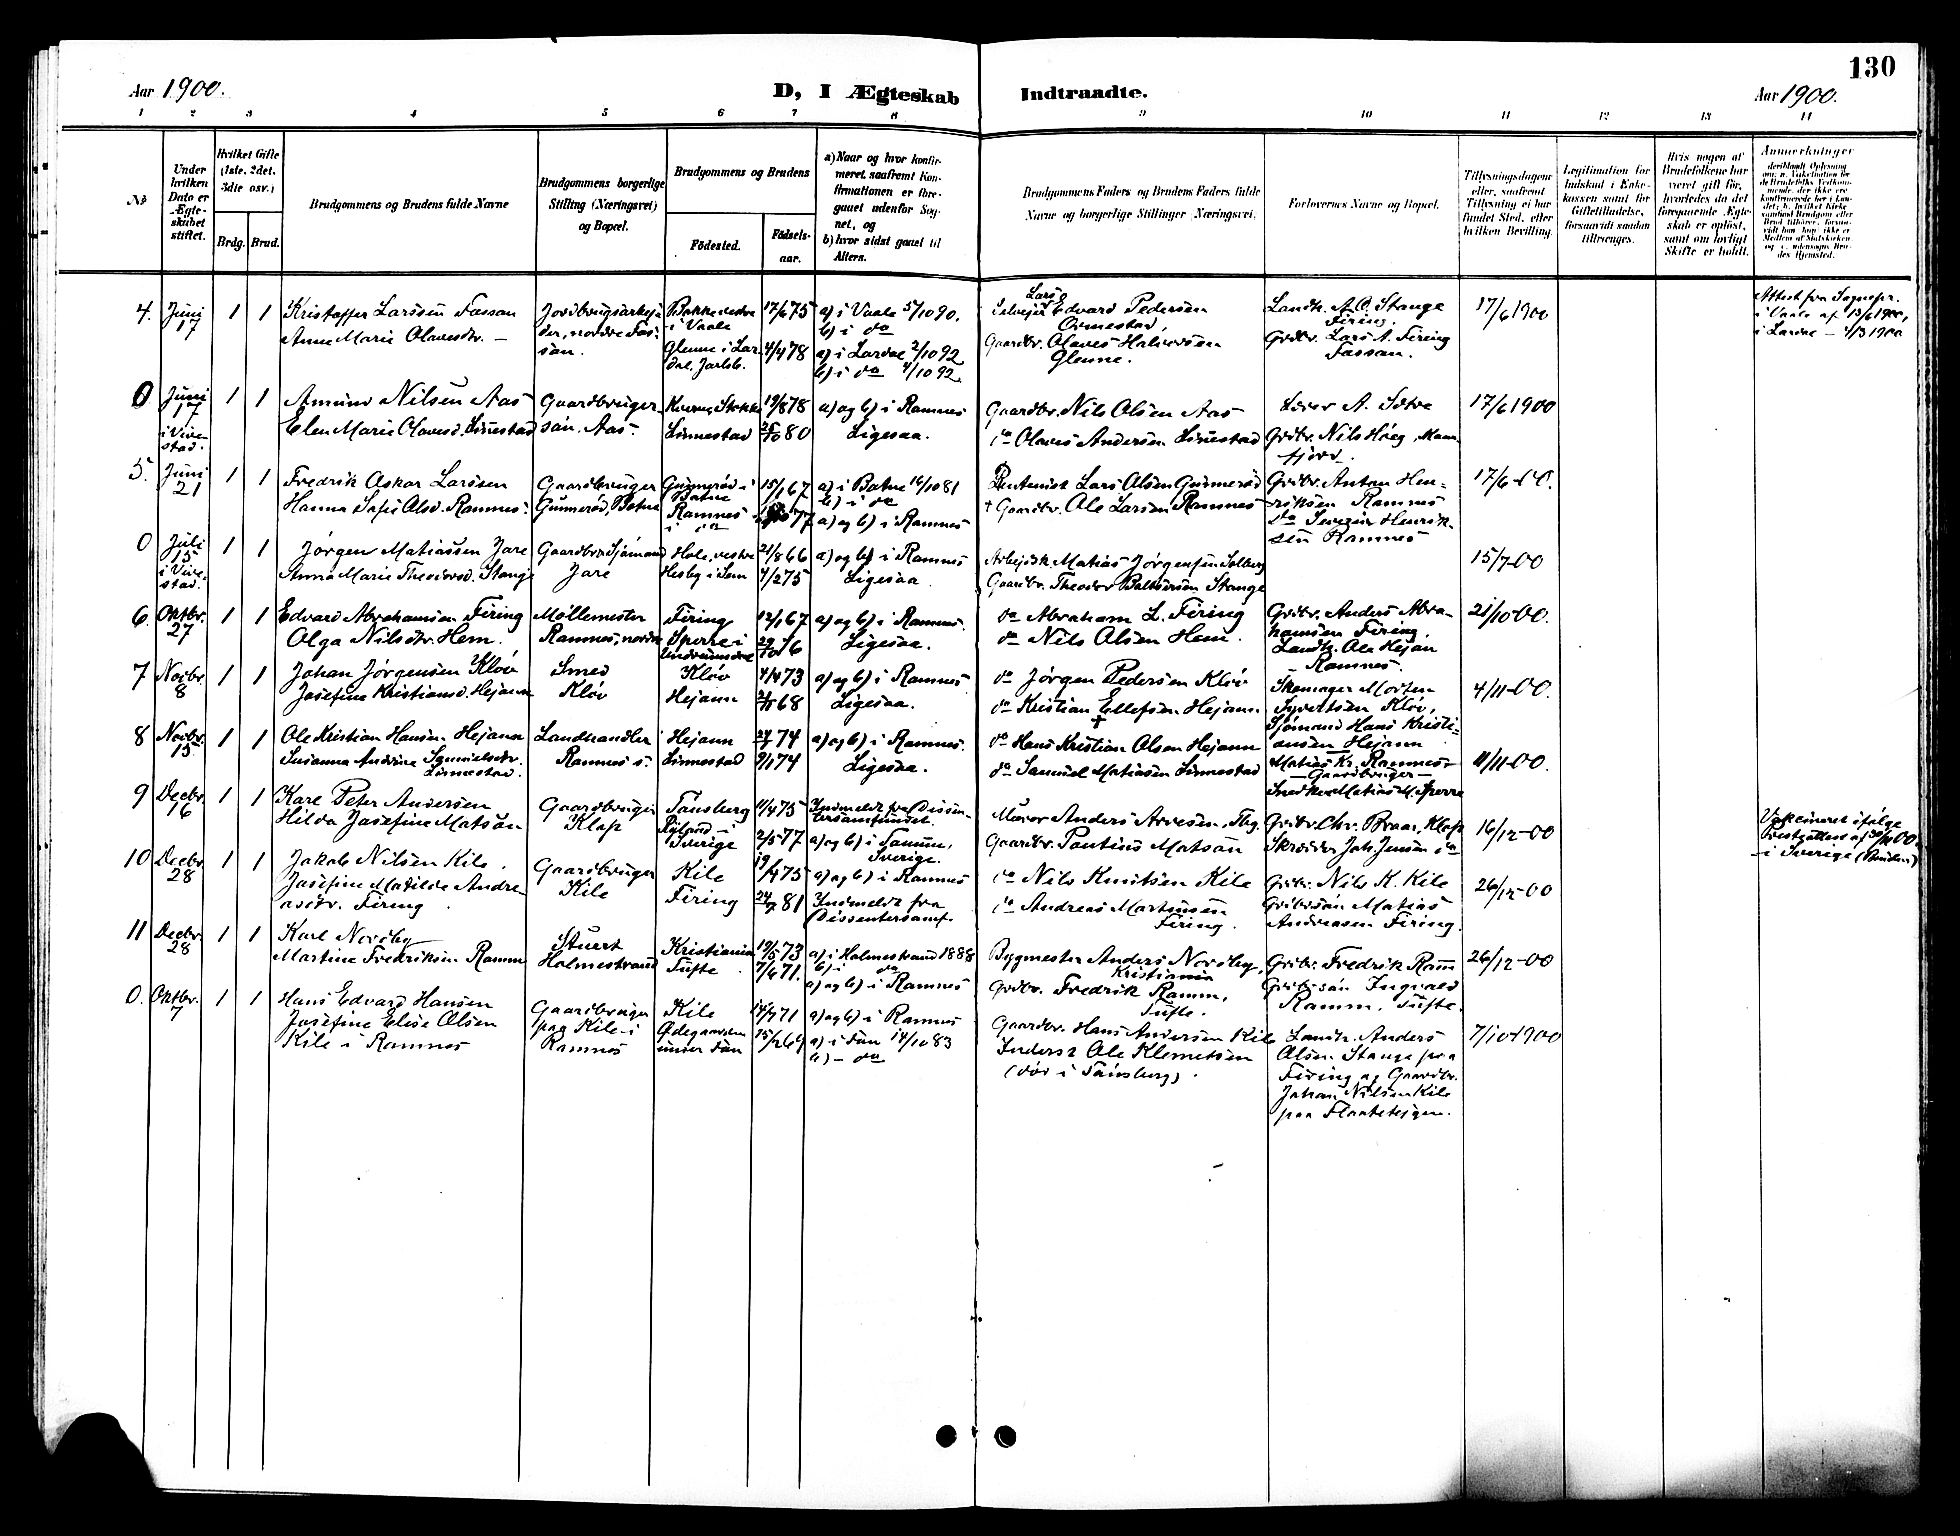 130
Aar 1900.
D, I Ægteskab Indtraadte.
Aar 1900.
1 2 3 4 5 6 7 8 9 10 11 12 13 14
No
Under hvilken Dato er Ægteskabet stiftet.
Hvilket Gifte (1ste, 2det, 3die osv.)
Brdg. Brud.
Brudgommens og Brudens fulde Navne
Brudgommens borgerlige Stilling (Næringsvei) og Bopæl.
Brudgommens og Brudens
Födested.
Födselsaar.
a) Naar og hvor konfirmeret, saafremt Konfirmationen er foregaaet udenfor Sognet, og
b) hvor sidst gaaet til Alters.
Brudgommens Faders og Brudens Faders fulde Navne og borgerlige Stillinger Næringsvei.
Forlovernes Navne og Bopæl.
Tillysningsdagene eller, saafremt Tillysning ei har fundet Sted, efter hvilken Bevilling.
Legitimation for Indskud i Enkekassen samt for Giftetilladelse, forsaavidt saadan tiltrænges.
Hvis nogen af Brudefolkene har været gift før, hvorledes da det foregaaende Ægteskab er opløst, samt om lovligt Skifte er holdt.
Anmærkninger
4. Juni 17 1 1
Kristoffer Larssen Fossan
Anne Marie Olavesdr. —
Jordbrugsarbejder, nordre Fossan.
Bakke vestre i Vaale 17/6 75
Glenne i Lardal, Jarlsb. 4/4 78
a) i Vaale 5/10 90.
b) i do
a) i Lardal 2/10 92
b) i do 4/10 92
Selvejer Lars Edvard Pedersen Ormestad,
Gaardbr. Olaves Halvorsen Glenne.
Landh. A. O. Stange Firing.
Grdbr. Lars A. Firing Fossan.
17/6 1900
Attest fra Sognepr. i Vaale af 13/6 1900,
i Lardal — 4/3 1900
0 Juni 17 i Vivestad. 1 1
Amund Nilsen Aas
Elen Marie Olavesd. Linnestad
Gaardbrugersøn. Aas.
Kverne, Stokke 19/8 78
Linnestad 80
a) og b) i Ramnes
Ligesaa.
Gaardbr. Nils Olsen Aas
do Olaves Andersen Linnestad
Lærer A. Sætre
Grdbr. Nils Høeg,
17/6 1900
5. Juni 21 1 1
Fredrik Oskar Larssen
Hanna Sofie Olsd. Ramnes.
Gaardbruger
Gunnerød, Botne
Gunnerød i Botne 15/1 67
Ramnes i do 77
a) i Botne 16/10 81
b) i do
a) og b) i Ramnes
Rentenist Lars Olsen Gunnerød
+ Gaardbr. Ole Larsen Ramnes
Grdbr. Anton Henriksen Ramnes
do Severin Henriksen Ramnes
17/6-00.
0 Juli 15 i Vivestad. 1 1
Jørgen Matiassen Jare
Anna Marie Theodorsd. Stange
Gaardbr. Sjømand
Jare
Hole, vestre 21/8 66
Hesby i Sem 4/2 75
a) og b) i Ramnes
Ligesaa.
Arbejdsk. Matias Jørgensen Solberg
Gaardbr. Theodor Baltsersen Stange
15/7-00
6. Oktbr. 27 1 1
Edvard Abrahamsen Firing
Olga Nilsdtr. Hem.
Møllemester
Ramnes, nordre
Firing 12/1 67
Sperre i 76
a) og b) i Ramnes.
Ligesaa.
do Abraham L. Firing
do Nils Olsen Hem.
Grdbr. Anders Abrahamsen Firing.
Landh. Ole Hejan — Ramnes.
21/10-00.
7 Novbr. 8 1 1
Johan Jørgensen Kløv
Josefine Kristiansd. Hejann
Smed
Kløv
Kløv 4/4 73
Hejann 68
a) og b) i Ramnes
Ligesaa.
do Jørgen Pedersen Kløv
do Kristian Ellefsen Hejann
+
Skomager Morten Syvertsen Kløv,
Sjømand Hans Kristiansen Hejann
4/11-00.
8 Novbr. 15 1 1
Ole Kristian Hansen Hejann
Susanna Andrine Samuelsdtr. Linnestad.
Landhandler
Ramnes s.
Hejann 74
Linnestad 9/1 74
a) og b) i Ramnes.
Ligesaa.
do Hans Kristian Olsen Hejann
do Samuel Matiasen Linnestad
Matias Kr. Ramnes — Gaardbruger —
Snedker Matias M. Sperre
11/11-00.
9 Decbr. 16 1 1
Karl Peter Andersen
Hilda Josefine Matsøn
Gaardbruger
Klop
Tønsberg 11/4 75
Sverige 2/5 77
Indmeldt fra Dissentersamfundet.
a) og b) i Tanum, Sverige.
Murer Anders Arvesen, Tbg.
Gaardbr. Pontius Matsøn
Grdbr. Chr. Braar, Klop
Skrædder Joh. Jensen do
16/12-00
Vakcineret ifølge Prestattest af 00
i Sverige
10 Decbr. 28 1 1
Jakob Nilsen Kile.
Josefine Matilde Andreasdr. Firing.
Gaardbruger
Kile
Kile 19/4 75
Firing 81
a) og b) i Ramnes
Indmeldt fra Dissentersamf.
do Nils Knutsen Kile
do Andreas Martinsen Firing.
Grdbr. Nils K. Kile
Grdbrsøn Matias Andreasen Firing.
26/12-00
11 Decbr. 28 1 1
Karl Nordby
Martine Fredriksen Ramm
Stuert
Holmestrand
Kristiania 19/5 73
Tufte 7/6 71.
a) i Holmestrand 1888
b) i do
a) og b) i Ramnes
Bygmester Anders Nordby, Kristiania
Grdbr. Fredrik Ramm, Tufte.
Grdbr. Fredrik Ramm
Grdbrsøn Ingvald Ramm, Tufte.
26/12-00
0. Oktbr. 7 1 1
Hans Edvard Hansen
Josefine Elise Olsen
Kile i Ramnes
Gaardbruger
paa Kile i
Ramnes
Kile 14/7 71
Ødegaarden under Fon 15/2 69
a) og b) i Ramnes
a) i Fon 14/10 83
b) — do
Gaardbr. Hans Andersen Kile
Inderst Ole Klemetsen
(død i Tønsberg).
Landh. Anders
Olsen Stange paa
Firing og Gaardbr.
Johan Nilsen Kile
paa
7/10 1900